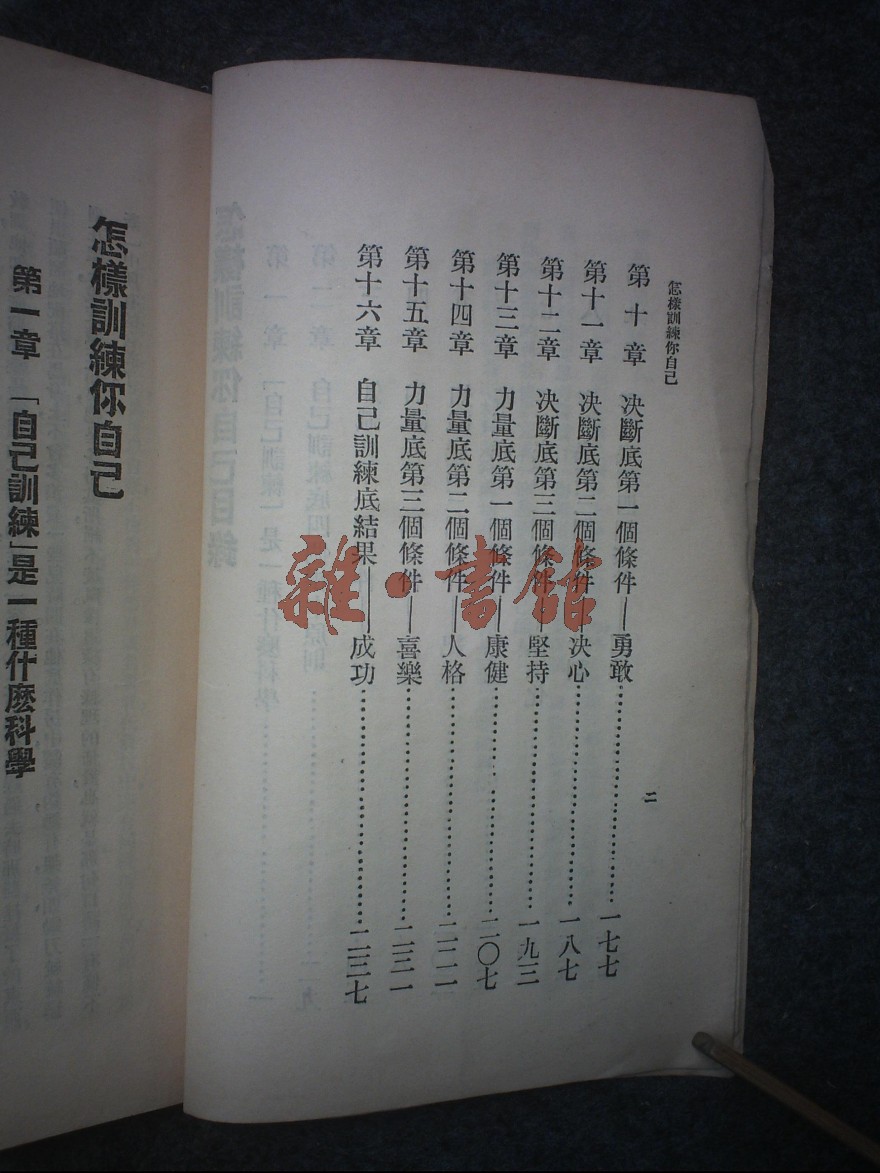 怎樣訓練你自己
第十章　決斷底第一個條件——勇敢……一七七
第十一章　決斷底第二個條件——決心……一八七
第十二章　決斷底第三個條件——堅持……一九三
第十三章　力量底第一個條件——康健……二〇七
第十四章　力量底第二個條件——人格……二二一
第十五章　力量底第三個條件——喜樂……二三一
第十六章　自己訓練底結果——成功……二三七
二
怎樣訓練你自己
第一章　「自己訓練」是一種什麽科學
雜·書館